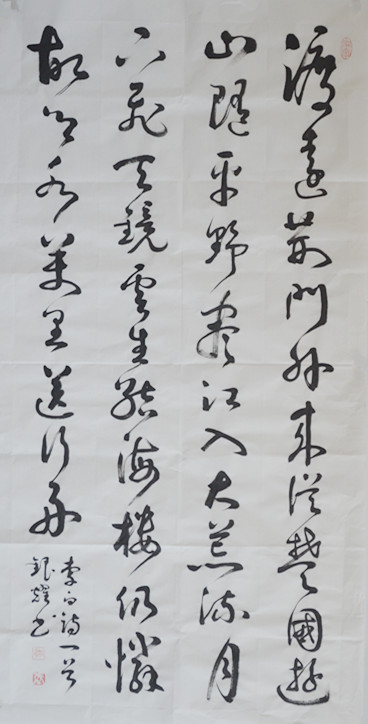 渡遠荊門外來從楚國遊
山隨平野盡江入大荒流月
下飛天鏡雲生結海樓仍憐
故鄉水萬里送行舟
李白詩一首
銀耀書